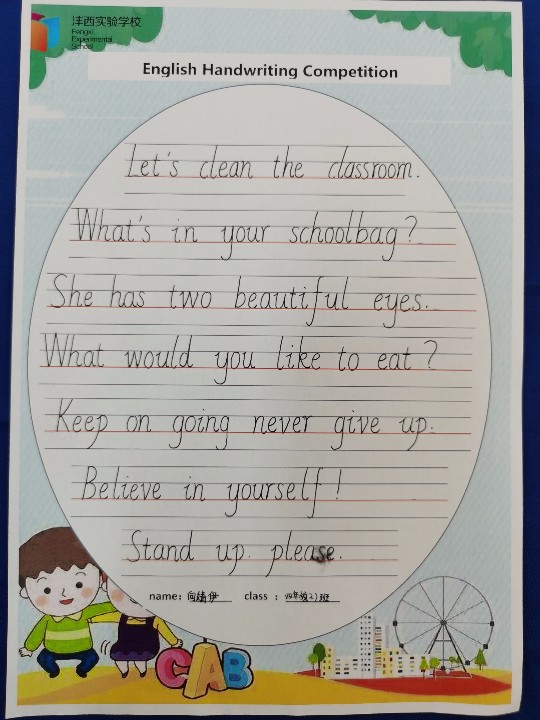 沣西实验学校
Fengxi
Experimental
School
English Handwriting Competition
Let's clean the classroom.
What's in your schoolbag?
She has two beautiful eyes.
What would you like to eat?
Keep on going never give up.
Believe in yourself!
Stand up. please.
name: 向婧伊 class: 四年级(2)班
CAB